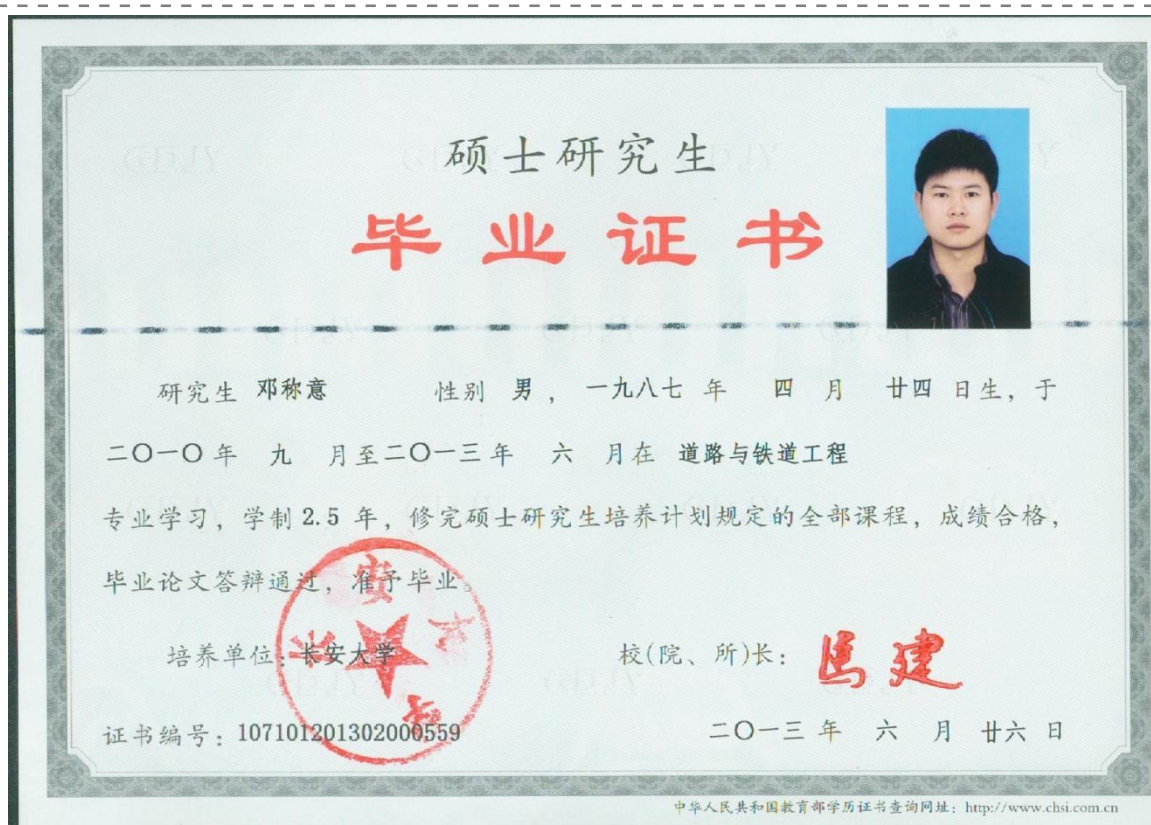 硕士研究生
毕业证书
研究生 邓称意 性别 男，一九八七 年 四 月 廿四 日生，于
二〇一〇年 九 月至二〇一三年 六 月在 道路与铁道工程
专业学习，学制 2.5 年，修完硕士研究生培养计划规定的全部课程，成绩合格，
毕业论文答辩通过，准予毕业。
培养单位：长安大学 校(院、所)长：马建
证书编号：107101201302000559 二〇一三 年 六 月 廿六 日
中华人民共和国教育部学历证书查询网址：http://www.chsi.com.cn